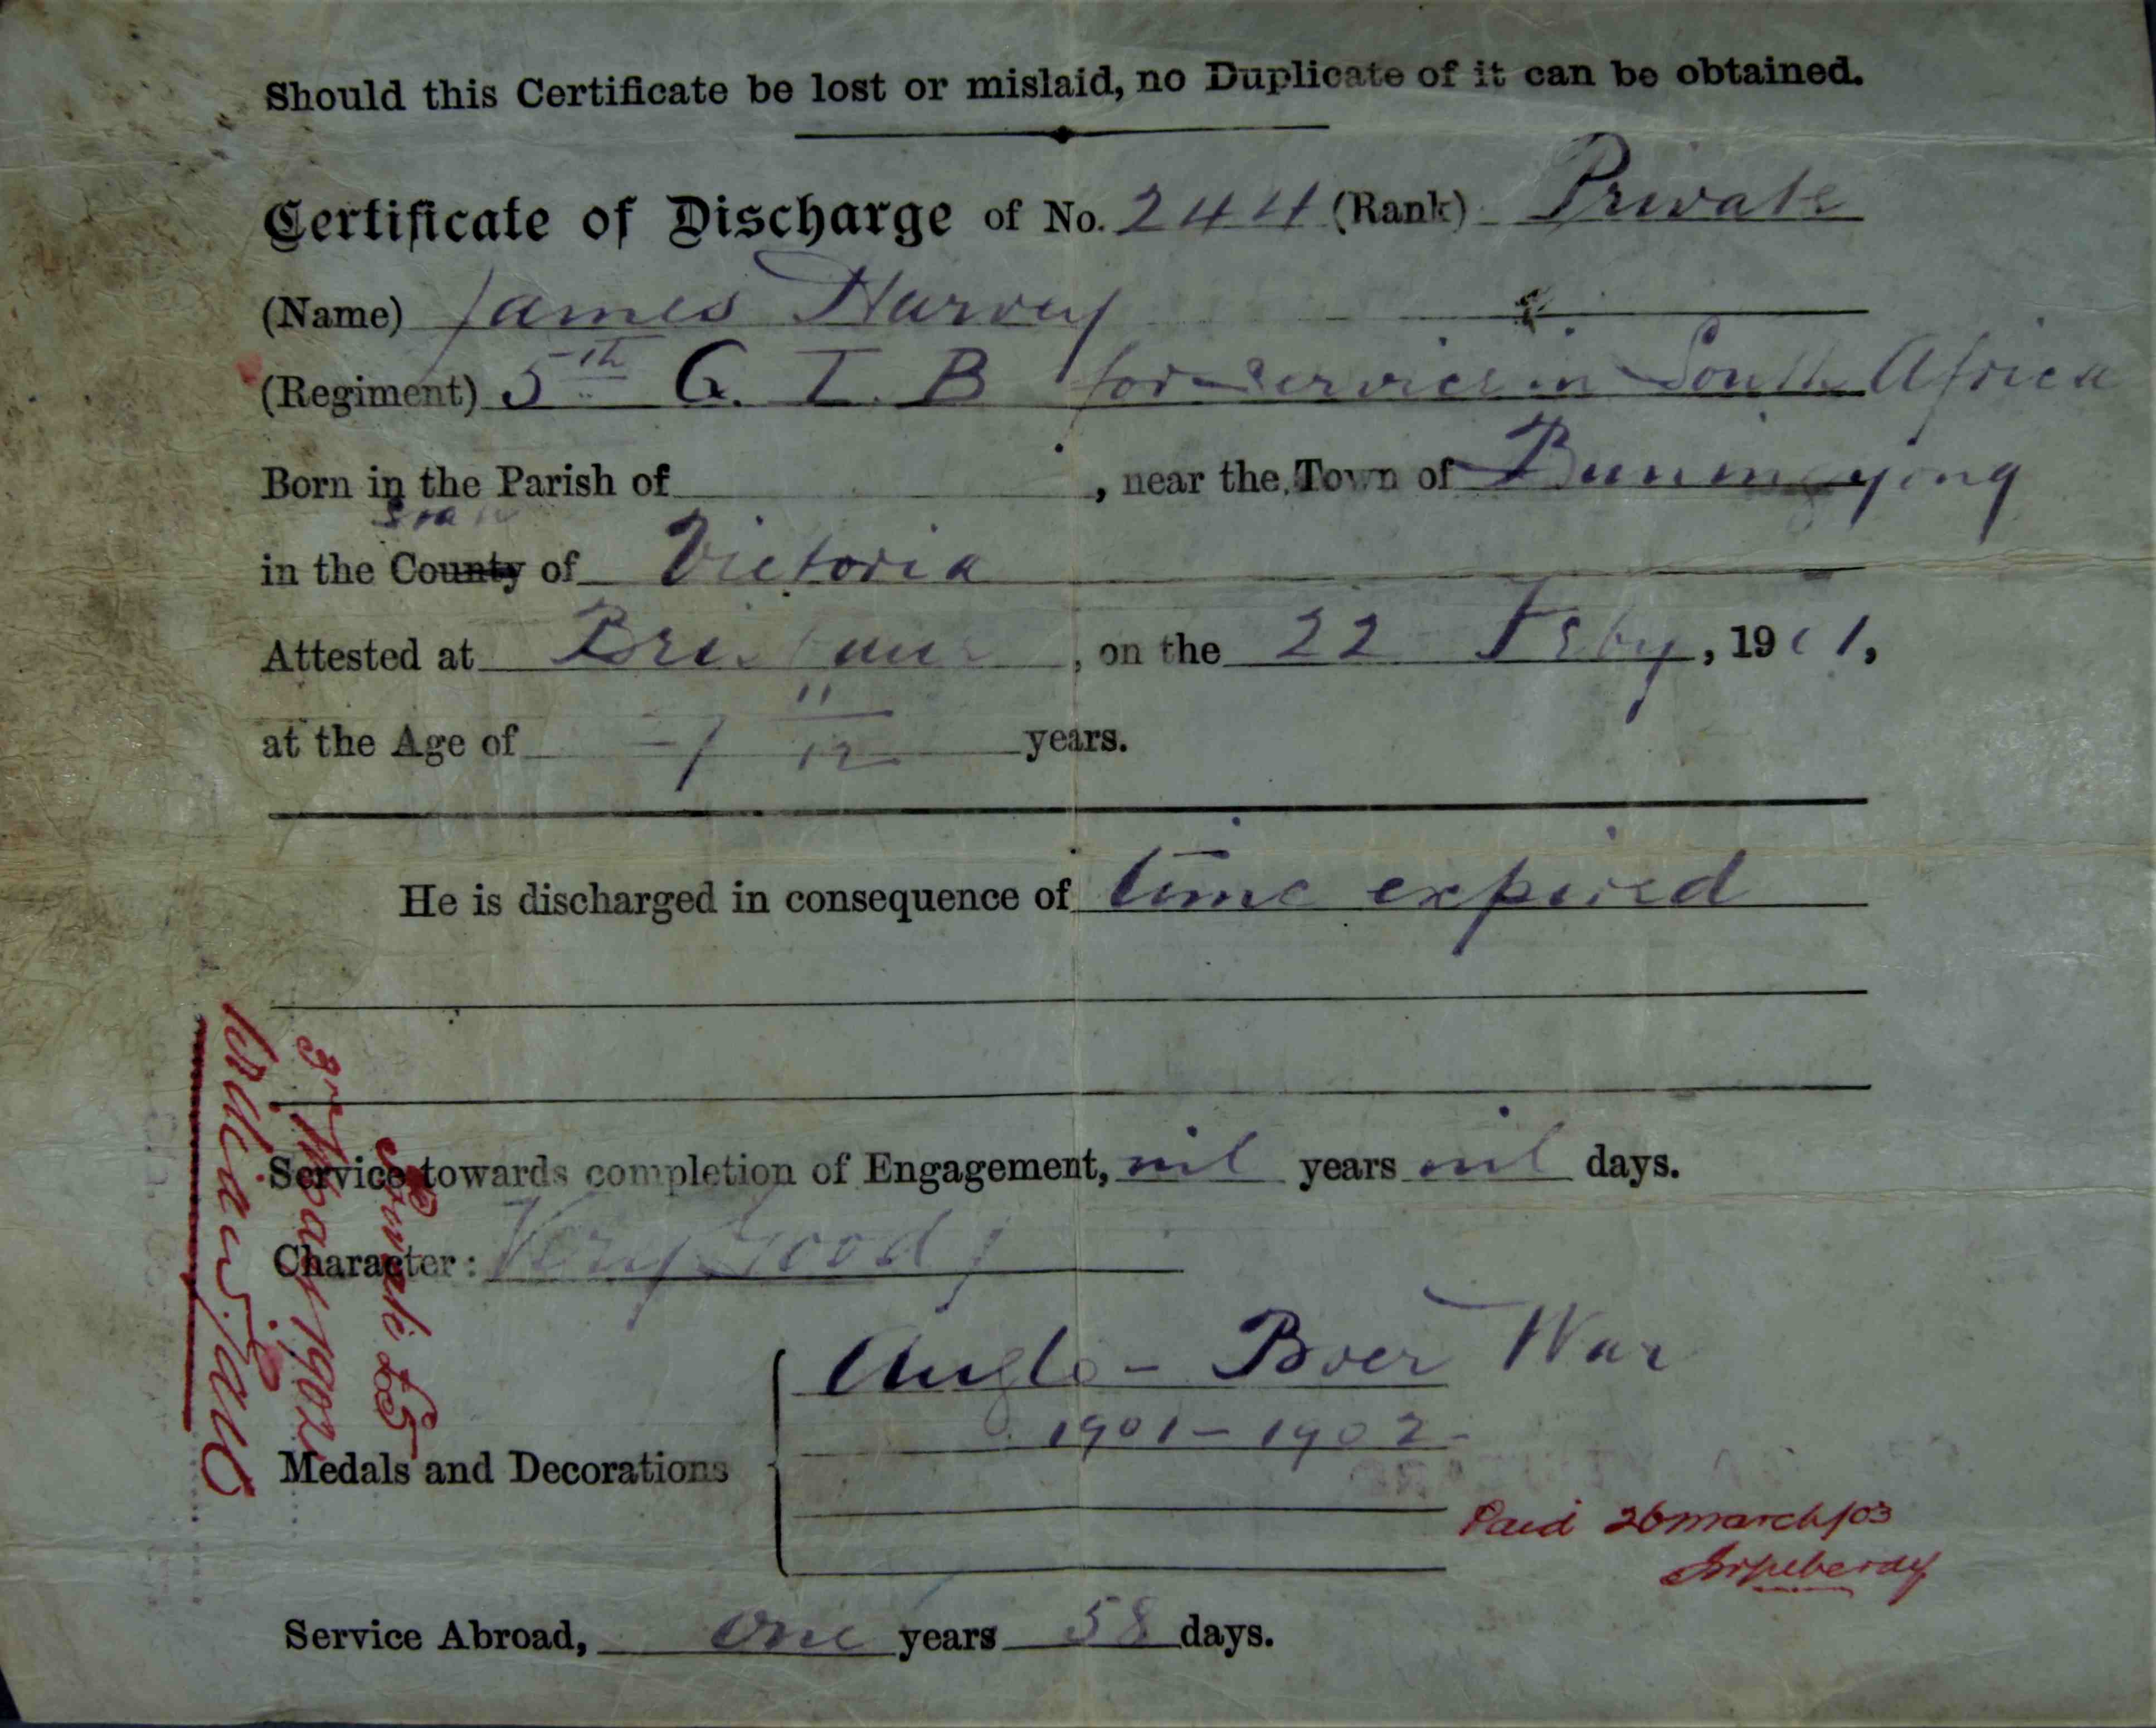 Should this Certificate be lost or mislaid, no Duplicate of it can be obtained.
Certificate of Discharge of No. 244 (Rank) Private
(Name) James Harvey
(Regiment) 5th Q. I. B for service in South Africa
Born in the Parish of , near the Town of Buninyong
State
in the County of Victoria
Attested at Brisbane, on the 22 Feby, 1901,
at the Age of 11/12 years.
He is discharged in consequence of time expired
Service towards completion of Engagement, nil years nil days.
Character: Very Good
Medals and Decorations
Anglo-Boer War
1901-1902-
Service Abroad, one years 58 days.
Paid 26 march/03
£5
1902